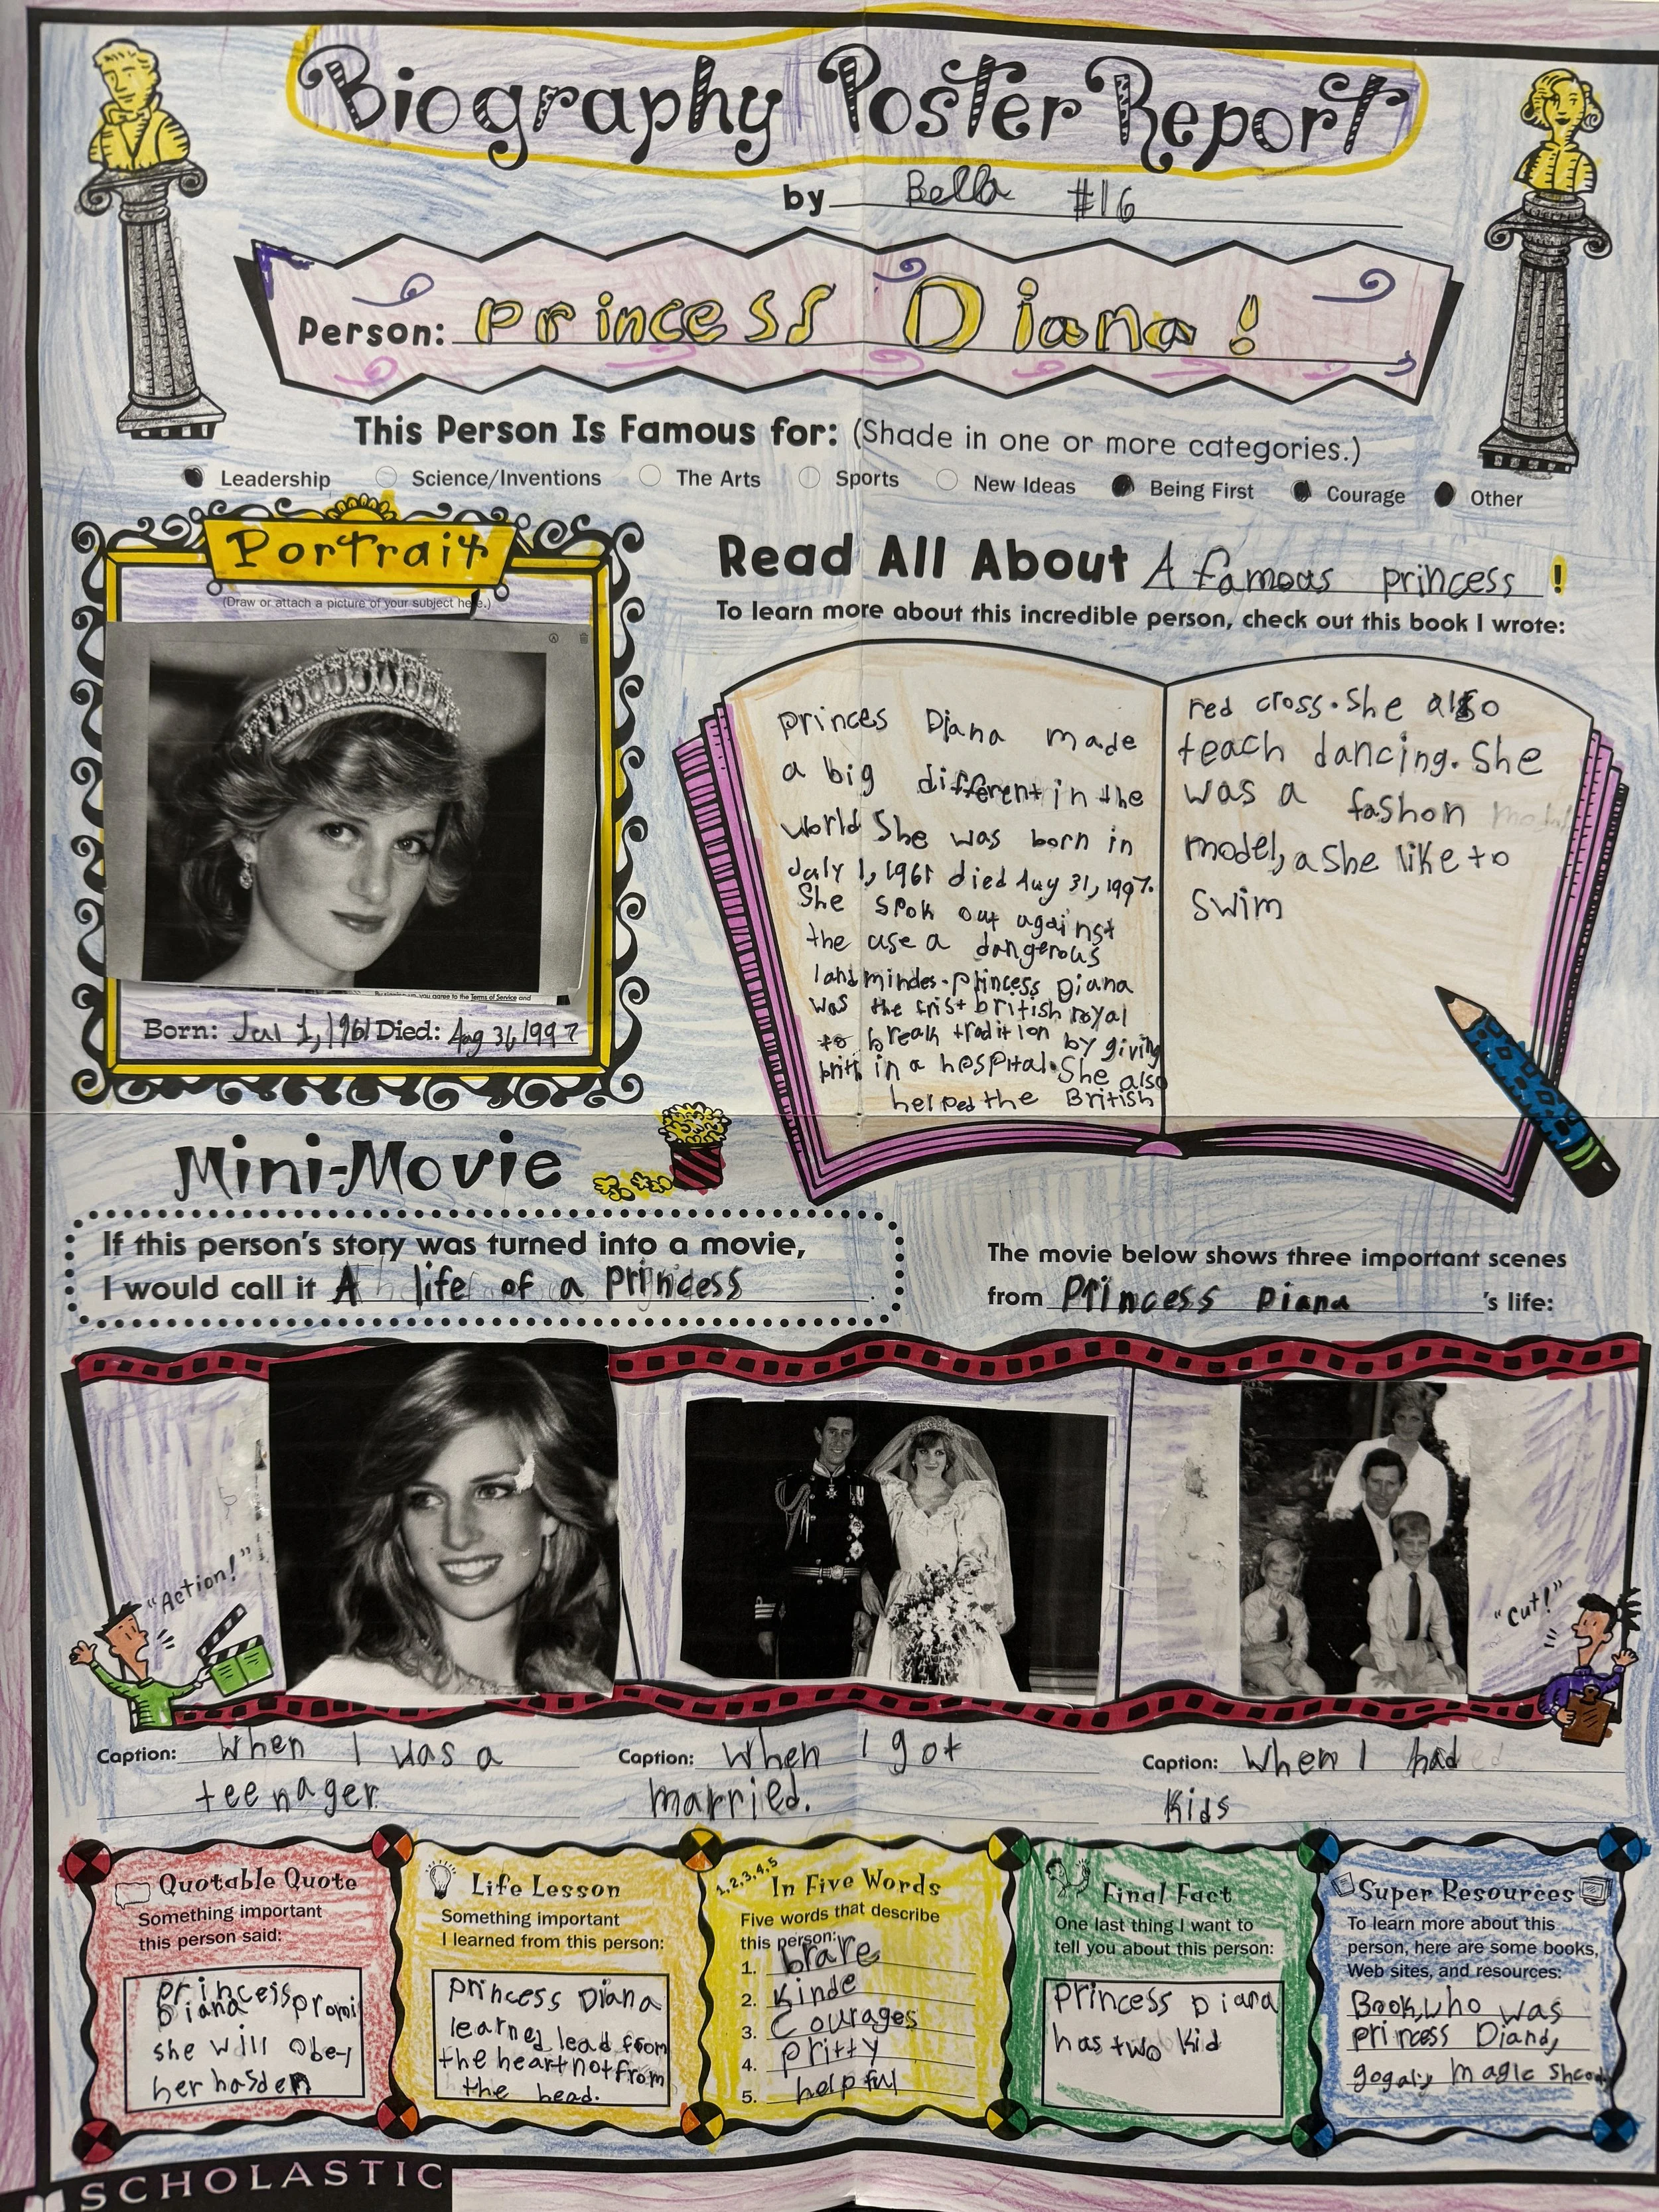 Biography Poster Report
by Bella #16
Person: princess Diana!
This Person Is Famous for: (Shade in one or more categories.)
Leadership Science/Inventions The Arts Sports New Ideas Being First Courage Other
Portrait
(Draw or attach a picture of your subject here.)
you agree to the Terms of Service and
Born: Jul 1, 1961 Died: Aug 31, 1997
Read All About A famous princess!
To learn more about this incredible person, check out this book I wrote:
princes Diana made
a big different in the
world She was born in
July 1, 1961 died Aug 31, 1997.
She spok out against
the use a dangerous
land mindes. princess Diana
was the frist british royal
to break tradition by giving
brith in a hospital. She also
helped the British
red cross. she also
teach dancing. She
was a fashon
model, a She like to
swim
Mini-Movie
If this person's story was turned into a movie,
I would call it A life of a princess.
The movie below shows three important scenes
from Princess Diana's life:
"Action!"
"Cut!"
Caption: When I was a
teenager.
Caption: When I got
married.
Caption: When I had
kids
Quotable Quote
Something important
this person said:
princess
Diana promi
she will obey
her hasden
Life Lesson
Something important
I learned from this person:
princess Diana
learned lead from
the heart not from
the head.
1,2,3,4,5
In Five Words
Five words that describe
this person:
1. brave
2. kinde
3. Courages
4. pritty
5. helpful
Final Fact
One last thing I want to
tell you about this person:
Princess Diana
has two kid
Super Resources
To learn more about this
person, here are some books,
Web sites, and resources:
Book, who was
princess Diana,
magic
SCHOLASTIC